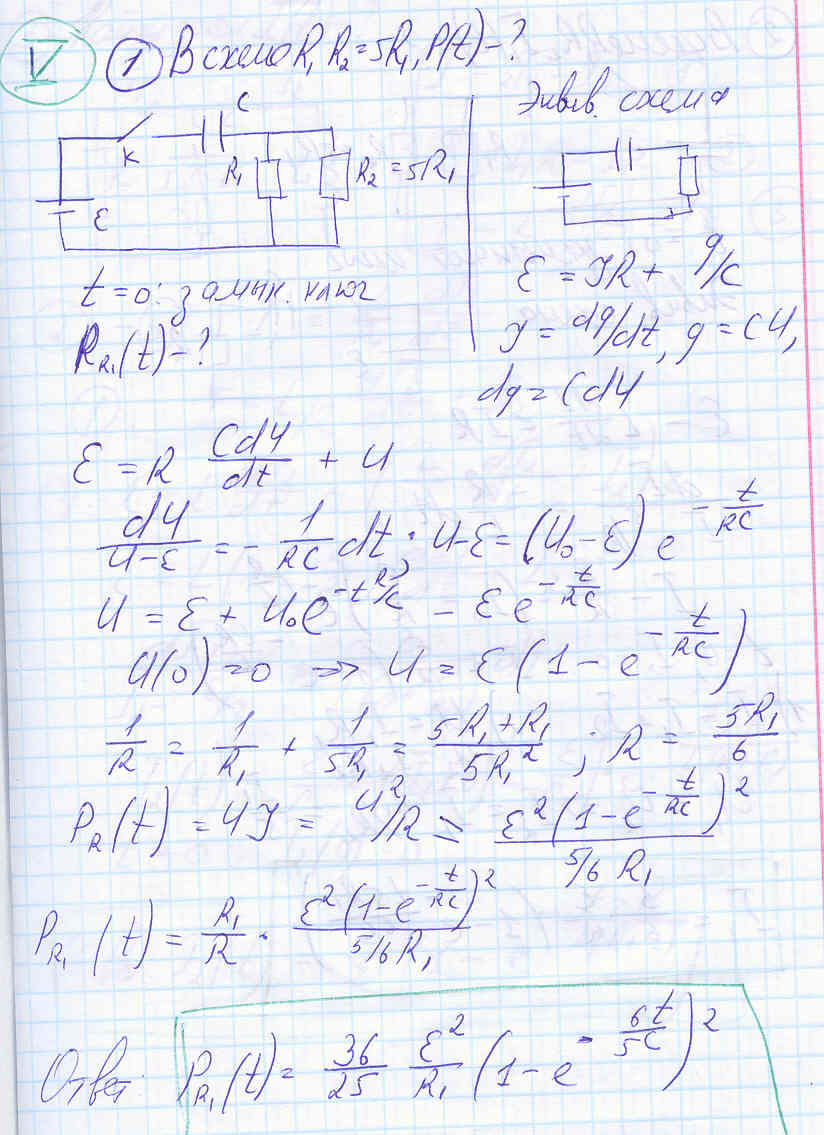 V ① В схеме R₁ R₂ = 5R₁, P(t) - ?
C
K
R₁
R₂ = 5R₁
ε
t = 0: замык. ключ
P_R₁(t) - ?
Эквив. схема
ε = IR + q/c
I = dq/dt, q = CU,
dq = CdU
ε = R CdU/dt + U
dU/(U-ε) = - 1/RC dt; U-ε = (U₀-ε) e^(-t/RC)
U = ε + U₀e^(-tR/c) - εe^(-t/RC)
U(0) = 0 => U = ε(1 - e^(-t/RC))
1/R = 1/R₁ + 1/5R₁ = (5R₁+R₁)/5R₁²; R = 5R₁/6
P_R(t) = UI = U²/R = ε²(1-e^(-t/RC))²/(5/6 R₁)
P_R₁(t) = R₁/R · ε²(1-e^(-t/RC))²/(5/6 R₁)
Ответ: P_R₁(t) = 36/25 ε²/R₁ (1-e^(-6t/5C))²